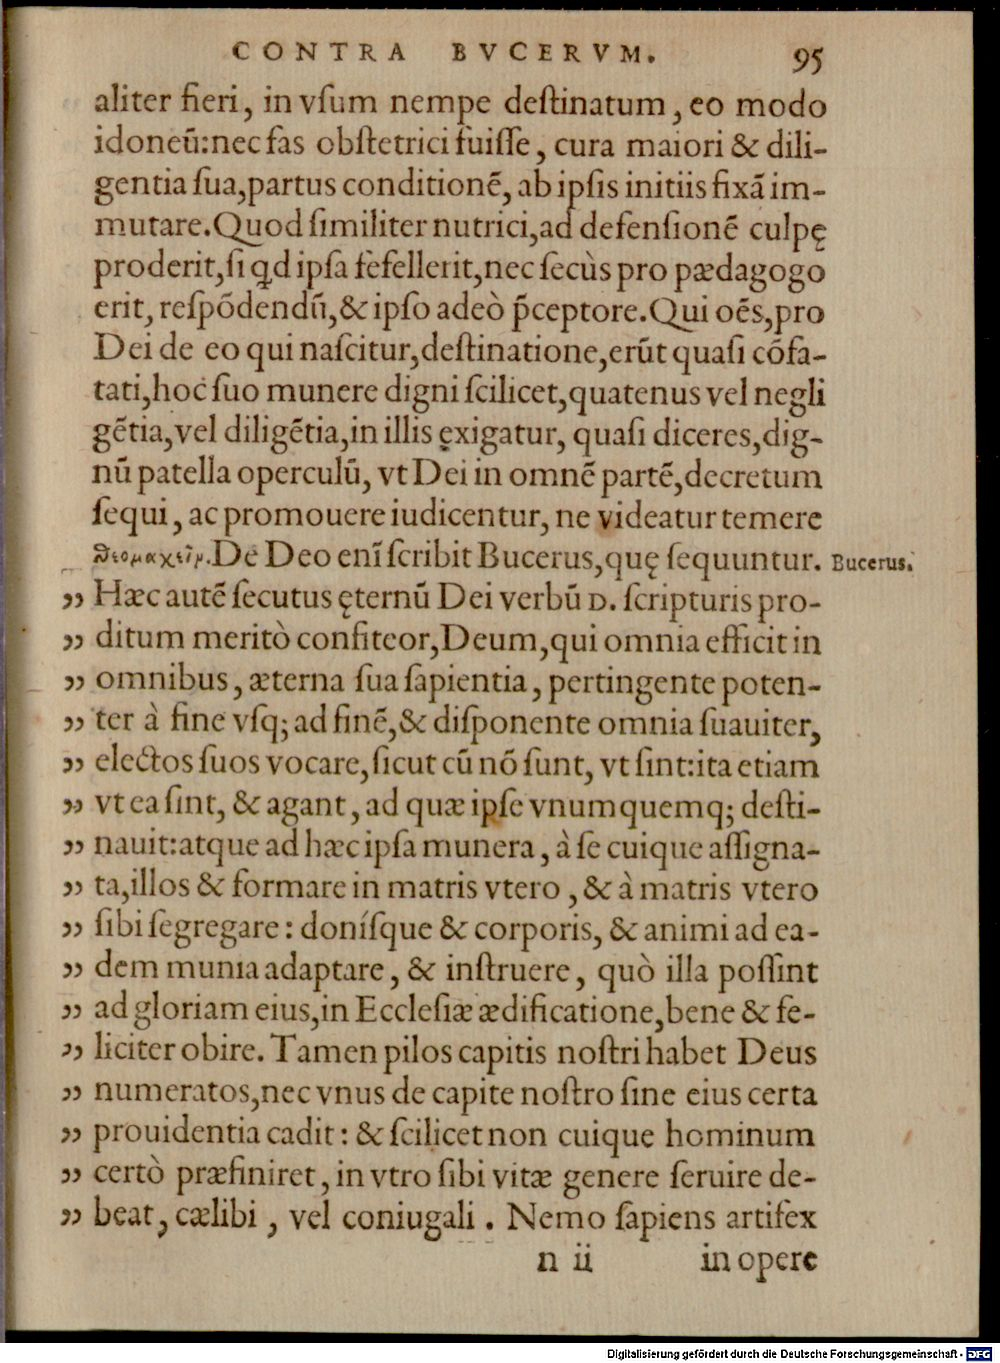 CONTRA BVCERVM. 95
aliter fieri, in vſum nempe deſtinatum, eo modo
idoneũ: nec fas obſtetrici fuiſſe, cura maiori & dili-
gentia ſua, partus conditionẽ, ab ipſis initiis fixã im-
mutare. Quod ſimiliter nutrici, ad defenſionẽ culpę
proderit, ſi qd ipſa fefellerit, nec ſecùs pro pædagogo
erit, reſpõdendũ, & ipſo adeò p̃ceptore. Qui oẽs, pro
Dei de eo qui naſcitur, deſtinatione, erũt quaſi cõfa-
tati, hoc ſuo munere digni ſcilicet, quatenus vel negli
gẽtia, vel diligẽtia, in illis exigatur, quaſi diceres, dig-
nũ patella operculũ, vt Dei in omnẽ partẽ, decretum
ſequi, ac promouere iudicentur, ne videatur temere
θεομαχεῖν. De Deo enĩ ſcribit Bucerus, quę ſequuntur. Bucerus.
„ Hæc autẽ ſecutus ęternũ Dei verbũ D. ſcripturis pro-
„ ditum meritò confiteor, Deum, qui omnia efficit in
„ omnibus, æterna ſua ſapientia, pertingente poten-
„ ter à fine vſq; ad finẽ, & diſponente omnia ſuauiter,
„ electos ſuos vocare, ſicut cũ nõ ſunt, vt ſint: ita etiam
„ vt ea ſint, & agant, ad quæ ipſe vnumquemq; deſti-
„ nauit: atque ad hæc ipſa munera, à ſe cuique aſſigna-
„ ta, illos & formare in matris vtero, & à matris vtero
„ ſibi ſegregare: doníſque & corporis, & animi ad ea-
„ dem munia adaptare, & inſtruere, quò illa poſſint
„ ad gloriam eius, in Eccleſiæ ædificatione, bene & fe-
„ liciter obire. Tamen pilos capitis noſtri habet Deus
„ numeratos, nec vnus de capite noſtro ſine eius certa
„ prouidentia cadit: & ſcilicet non cuique hominum
„ certò præfiniret, in vtro ſibi vitæ genere ſeruire de-
„ beat, cælibi, vel coniugali. Nemo ſapiens artifex
n ii in opere
Digitalisierung gefördert durch die Deutsche Forschungsgemeinschaft - DFG